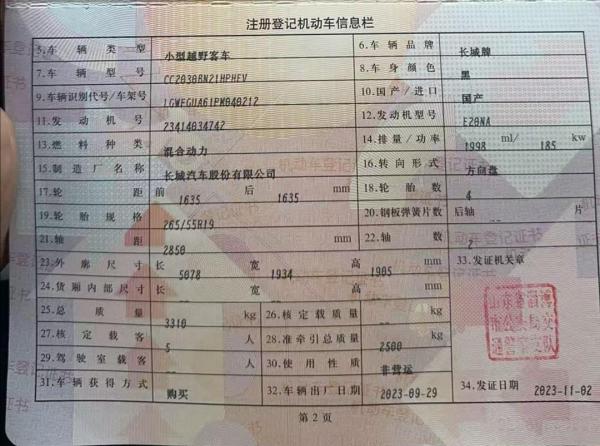 注册登记机动车信息栏
5.车辆类型 小型越野客车 6.车辆品牌 长城牌
7.车辆型号 CC2030BN21HPHEV 8.车身颜色 黑
9.车辆识别代号/车架号 LGWFGUA61PM040212 10.国产/进口 国产
11.发动机号 23414034742 12.发动机型号 E20NA
13.燃料种类 混合动力 14.排量/功率 1998 ml/ 185 kw
15.制造厂名称 长城汽车股份有限公司 16.转向形式 方向盘
17.轮距 前 1635 后 1635 mm 18.轮胎数 4
19.轮胎规格 265/55R19 20.钢板弹簧片数 后轴 片
21.轴距 2850 mm 22.轴数 2
23.外廓尺寸 长 5078 宽 1934 高 1905 mm 33.发证机关章
24.货厢内部尺寸 长 宽 高 mm
25.总质量 3310 kg 26.核定载质量 kg
27.核定载客 5 人 28.准牵引总质量 2500 kg
29.驾驶室载客 人 30.使用性质 非营运
31.车辆获得方式 购买 32.车辆出厂日期 2023-09-29 34.发证日期 2023-11-02
山东省淄博
市公安局交
通警察支队
第2页